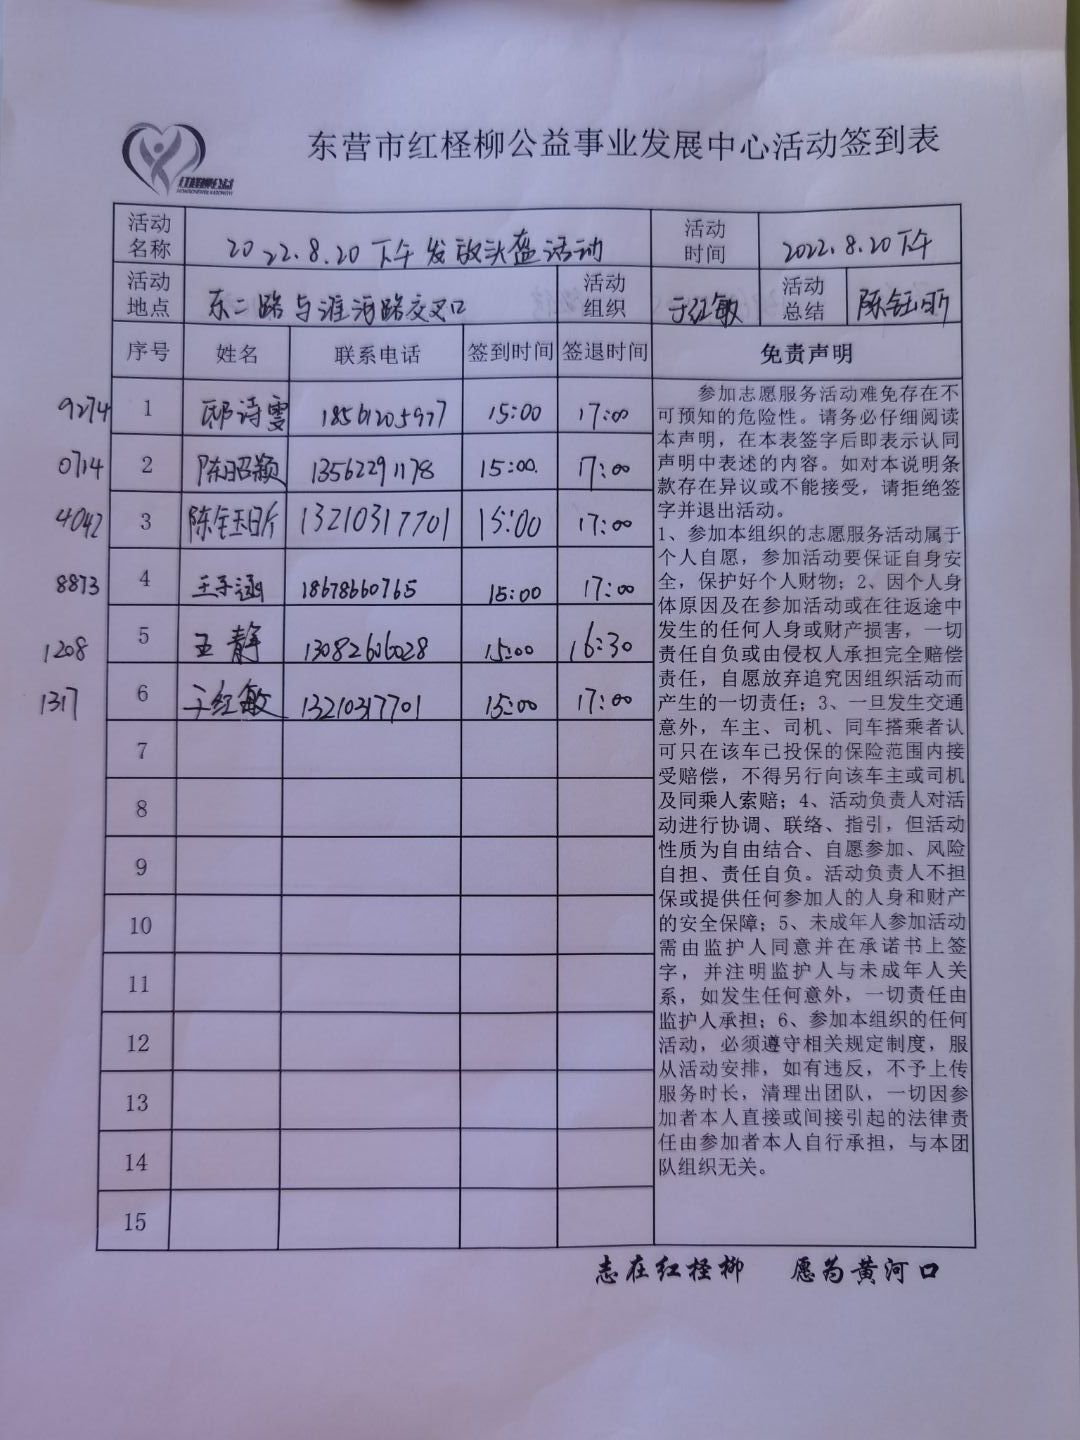 东营市红柽柳公益事业发展中心活动签到表
红柽柳公益
活动名称 2022.8.20下午发放头盔活动 活动时间 2022.8.20下午
活动地点 东二路与淮河路交叉口 活动组织 于红敏 活动总结 陈钰昕
序号 姓名 联系电话 签到时间 签退时间 免责声明
9274 1 邸诗雯 18561205977 15:00 17:00
0714 2 陈昭颖 13562291178 15:00. 17:00
4042 3 陈钰昕 13210317701 15:00 17:00
8873 4 王子涵 18678660765 15:00 17:00
1208 5 王静 13082606028 15:00 16:30
1317 6 于红敏 13210317701 15:00 17:00
7
8
9
10
11
12
13
14
15
参加志愿服务活动难免存在不
可预知的危险性。请务必仔细阅读
本声明，在本表签字后即表示认同
声明中表述的内容。如对本说明条
款存在异议或不能接受，请拒绝签
字并退出活动。
1、参加本组织的志愿服务活动属于
个人自愿，参加活动要保证自身安
全，保护好个人财物；2、因个人身
体原因及在参加活动或在往返途中
发生的任何人身或财产损害，一切
责任自负或由侵权人承担完全赔偿
责任，自愿放弃追究因组织活动而
产生的一切责任；3、一旦发生交通
意外，车主、司机、同车搭乘者认
可只在该车已投保的保险范围内接
受赔偿，不得另行向该车主或司机
及同乘人索赔；4、活动负责人对活
动进行协调、联络、指引，但活动
性质为自由结合、自愿参加、风险
自担、责任自负。活动负责人不担
保或提供任何参加人的人身和财产
的安全保障；5、未成年人参加活动
需由监护人同意并在承诺书上签
字，并注明监护人与未成年人关
系，如发生任何意外，一切责任由
监护人承担；6、参加本组织的任何
活动，必须遵守相关规定制度，服
从活动安排，如有违反，不予上传
服务时长，清理出团队，一切因参
加者本人直接或间接引起的法律责
任由参加者本人自行承担，与本团
队组织无关。
志在红柽柳 愿为黄河口